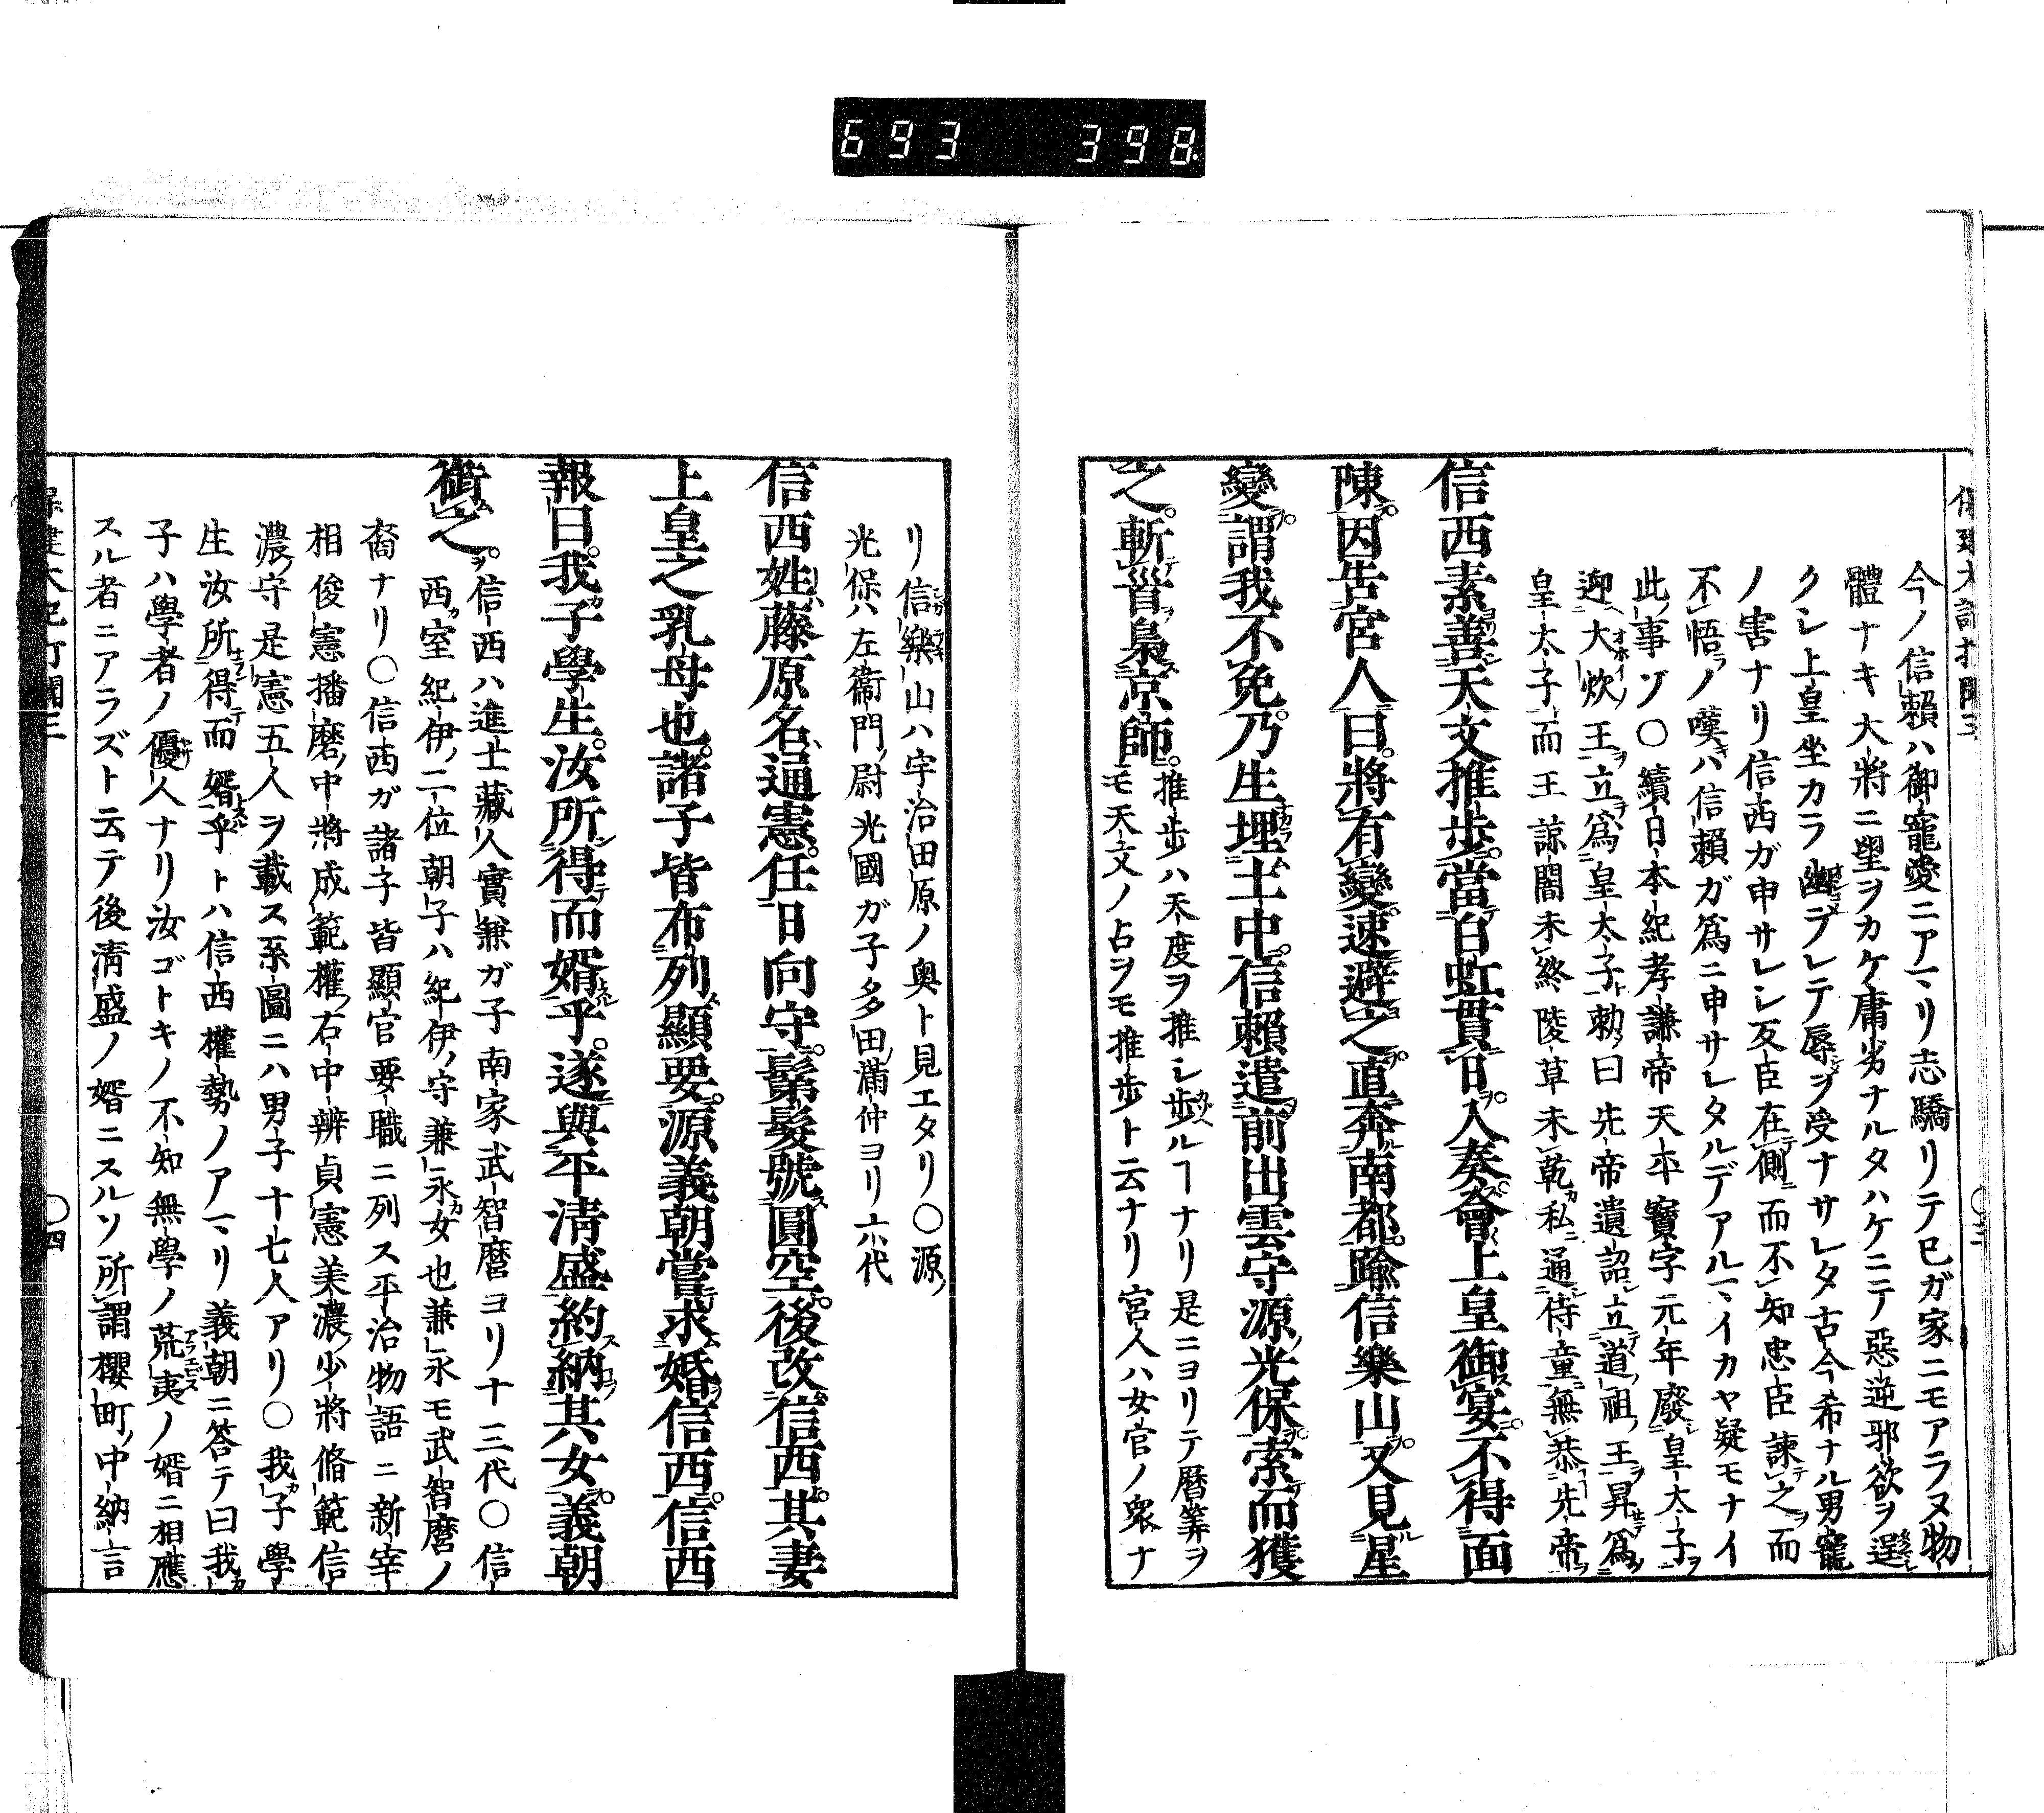 693 398
今ノ信賴ハ御寵愛ニアマリ志驕リテ已ガ家ニモアラヌ物
體ナキ大將ニ望ヲカケ庸劣ナルタハケニテ惡逆邪欲ヲ逞
クシ上皇坐カラ幽ヲレテ辱ヲ受ナサレタ古今希ナル男寵
ノ害ナリ信西ガ申サレシ反臣在側而不知忠臣諫之而
不悟ノ嘆ハ信賴ガ爲ニ申サレタルデアルマイカヤ疑モナイ
此事ゾ〇續日本紀孝謙帝天平寶字元年廢皇太子
迎大炊王立爲皇太子勅曰先帝遺詔立道祖王昇爲
皇太子而王諒闇未終陵草未乾私通侍童無恭先帝
信西素善天文推步當白虹貫日入奏會上皇御宴不得面
陳因告宮人曰將有變速避之直奔南都踰信樂山又見星
變謂我不免乃生埋土中信賴遣前出雲守源光保索而獲
之斬首梟京師
推歩ハ天度ヲ推シ歩ルヿナリ是ニヨリテ暦筭ヲ
モ天文ノ占ヲモ推歩ト云ナリ宮人ハ女官ノ衆ナ
リ信樂山ハ宇治田原ノ奥ト見エタリ〇源
光保ハ左衞門尉光國ガ子多田滿仲ヨリ六代
信西姓藤原名通憲任日向守鬀髮號圓空後改信西其妻
上皇之乳母也諸子皆布列顯要源義朝嘗求婚信西信西
報曰我子學生汝所得而婿乎遂與平淸盛約納其女義朝
銜之
信西ハ進士藏人實兼ガ子南家武智麿ヨリ十三代〇信
西室紀伊二位朝子ハ紀伊守兼永女也兼永モ武智麿ノ
裔ナリ〇信西ガ諸子皆顯官要職ニ列ス平治物語ニ新宰
相俊憲播磨中將成範權右中辨貞憲美濃少將脩範信
濃守是憲五人ヲ載ス系圖ニハ男子十七人アリ〇我子學
生汝所得而婿乎トハ信西權勢ノアマリ義朝ニ答テ曰我
子ハ學者ノ優人ナリ汝ゴトキノ不知無學ノ荒夷ノ婿ニ相應
スル者ニアラズト云テ後淸盛ノ婿ニスルソ所謂櫻町中納言
〇四